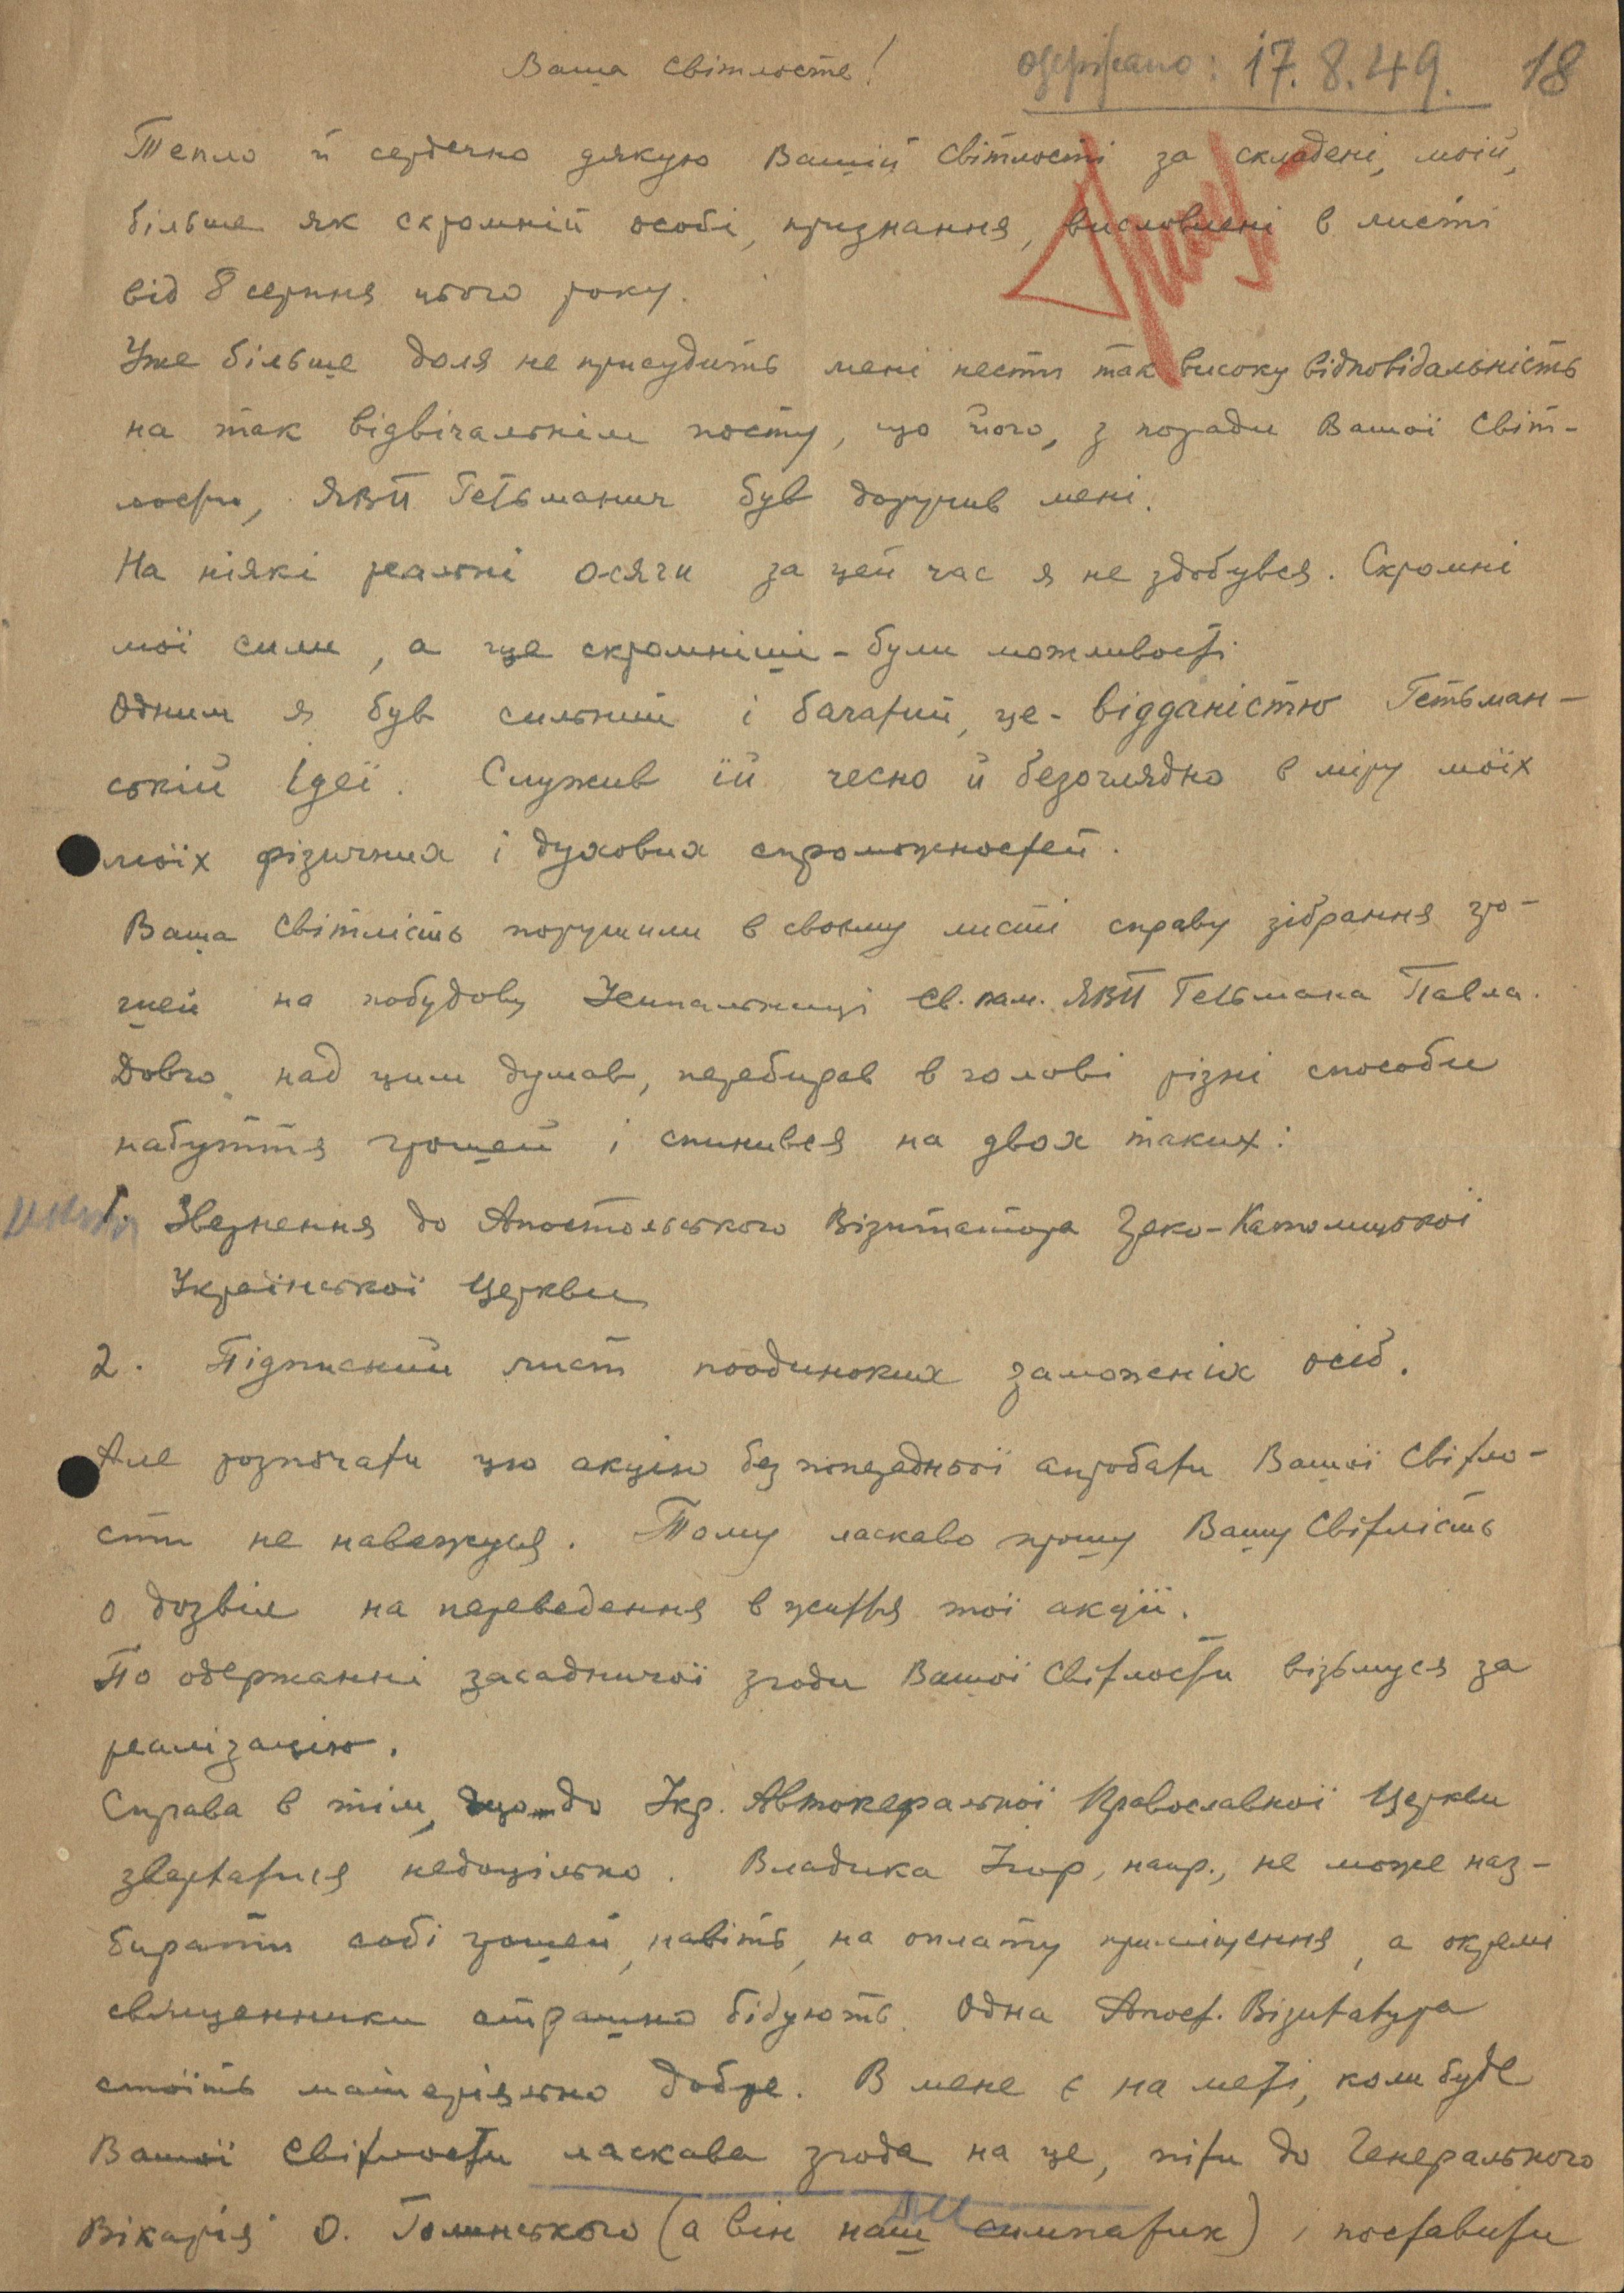 Ваша Світлосте!
одержано: 17.8.49. 18
Тепло й сердечно дякую Вашій Світлості за складені, моїй,
більше як скромній особі, признання, висловлені в листі
від 8 серпня цього року.
Уже більше доля не присудить мені нести так високу відповідальність
на так відвічальнім посту, що його, з поради Вашої Світ-
лости, ЯВП Гетьманич був доручив мені.
На ніякі реальні осяги за цей час я не здобувся. Скромні
мої сили, а ще скромніші - були можливості.
Одним я був сильний і багатий, це - відданістю Гетьман-
ській Ідеї. Служив їй чесно й безоглядно в міру моїх
моїх фізичних і духових спроможностей.
Ваша Світлість порушили в своєму листі справу зібрання гро-
шей на побудову Усипальниці св. пам. ЯВП Гетьмана Павла.
Довго над цим думав, перебирав в голові різні способи
набуття грошей і спинився на двох таких:
1. Звернення до Апостольського Візитатора Греко-Католицької
Української Церкви
2. Підписний лист поодиноких заможніх осіб.
Але розпочати цю акцію без попередньої апробати Вашої Світло-
сти не наважуюся. Тому ласкаво прошу Вашу Світлість
о дозвіл на переведення в життя тої акції.
По одержанні засадничої згоди Вашої Світлости візьмуся за
реалізацію.
Справа в тім, що до Укр. Автокефальної Православної Церкви
звертатися недоцільно. Владика Ігор, напр., не може наз-
бирати собі грошей, навіть, на оплату приміщення, а окремі
священники страшно бідують. Одна Апост. Візитатура
стоїть матеріяльно добре. В мене є на меті, коли буде
Вашої Світлости ласкава згода на це, піти до Генерального
Вікарія О. Голинського (а він наш симпатик) і поставити